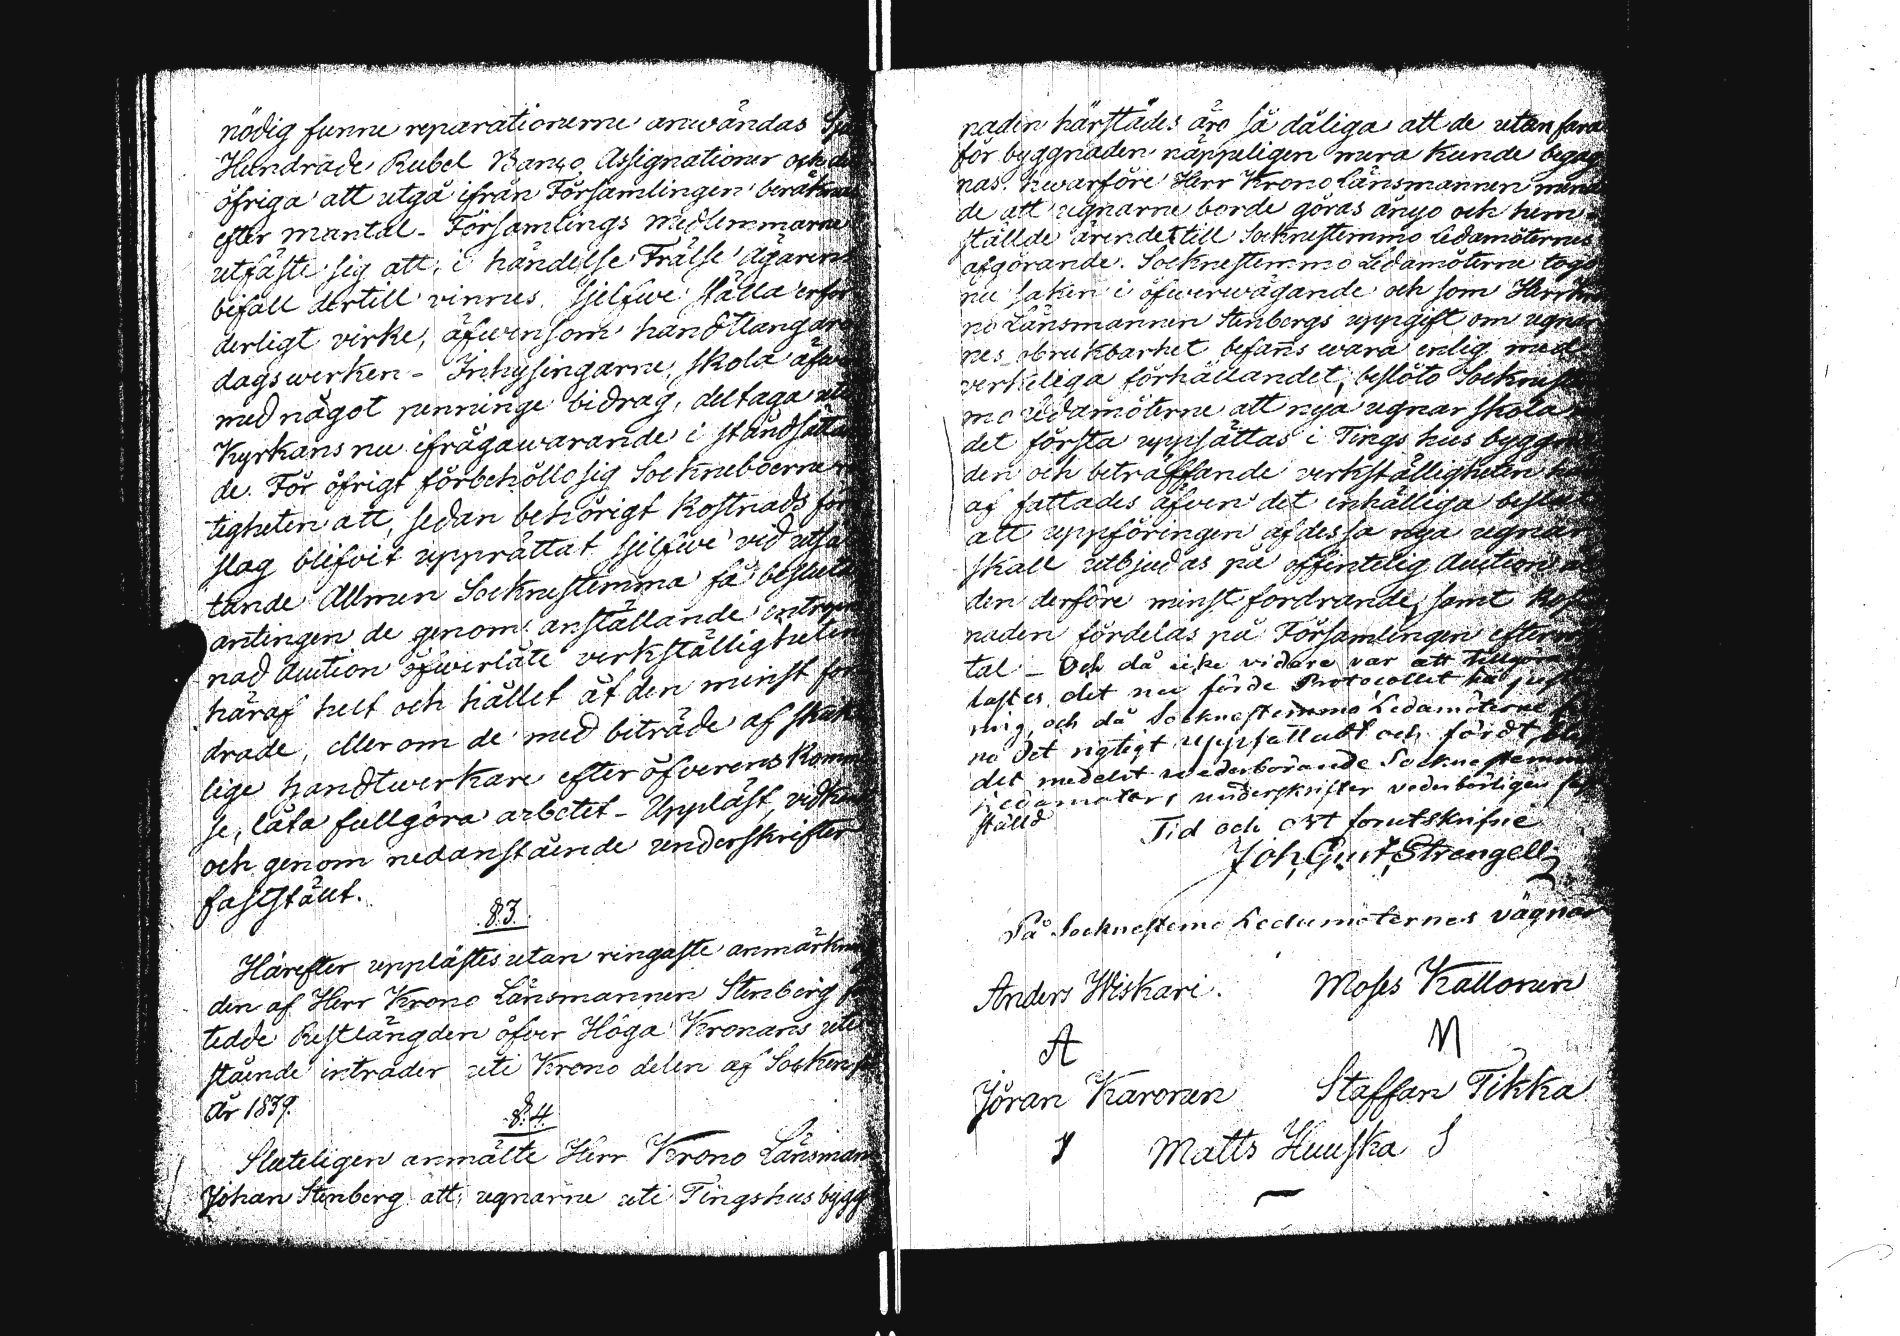 nödig funne reparationerne användas Sju
Hundrade Rubel Banco Assignationer och det
öfriga att utgå ifrån Församlingen beräknad
efter mantal – Församlings medlemmarne
utfäste sig att, i händelse Frälse ägarens
bifall dertill vinnes, sjelfwe ställa erfor
derligt virke, äfwensom handtlangare
dagswerken – Inhysingarne, skola äfwen
med något penninge bidrag, deltaga uti
Kyrkans nu ifrågawarande i ståndsättan
de. För öfrigt förbehöllo sig Sockneboerne
tigheten att, sedan behörigt Kostnads för
slag blifvit upprättat sjelfwe vid utsa
tande Allmen Socknestemma få besluta
antingen de genom anställande entrepre
nad Auction öfwerlåte verkställigheten
häraf helt och hållet åt den minst for
drade, eller om de med biträde af skick
lige handtwerkare efter öfverenskomm
se, låta fullgöra arbetet – Uppläst, vidkänd
och genom nedanstående underskrifter
fastställt.
§.3.
Härefter upplästes utan ringaste anmärkning
den af Herr Krono Länsmannen Stenberg
tedde Restlängden öfver Höga Kronans ute
stående intrader uti Krono delen af Socken
År 1839.
§.4.
Sluteligen anmälte Herr Krono Länsman
Johan Stenberg att ugnarne uti Tingshus bygg
naden härstädes äro så dåliga att de utan fara
för byggnaden näppeligen mera kunde begag
nas. hwarföre Herr Krono Länsmannen mena
de att ugnarne borde göras ånyo och hem
ställde ärendet till Socknestemmo Ledamöternes
afgörande. Socknestemmo Ledamöterne togo
nu saken i öfwerwägande och som Herr Kro
no Länsmannen Stenbergs uppgift om ugnar
nes obrukbarhet befans wara enlig med
verkeliga förhållandet, beslöto Sockneste
mo Ledamöterne att nya ugnar skola
det första uppsättas i Tings hus byggna
den och beträffande verkställigheten här
af fattades äfven det enhälliga beslut
att uppföringen af dessa nya ugnar
skall utbjudas på offentelig Auction åt
den derföre minst fordrande, samt Kost
naden fördelas på Församlingen efter
tal – Och då icke vidare var att tillgöra
lastes det nu förde Protocollet
mig, och då Socknestemmo Ledamöterne
no Det rigtigt uppfattadt och fördt, ble
det medelst wederbörande Socknestemmo
Ledamoters underskrifter vederbörligen fast
ställd
Tid och ort förutskrifne
Joh. Gust. Strengell
På Socknestemo Ledamöternes vägnar
Anders Wiskari.
Moses Kallonen
A
M
Jöran Karonen
Staffan Tikka
J
Matts Huuska S